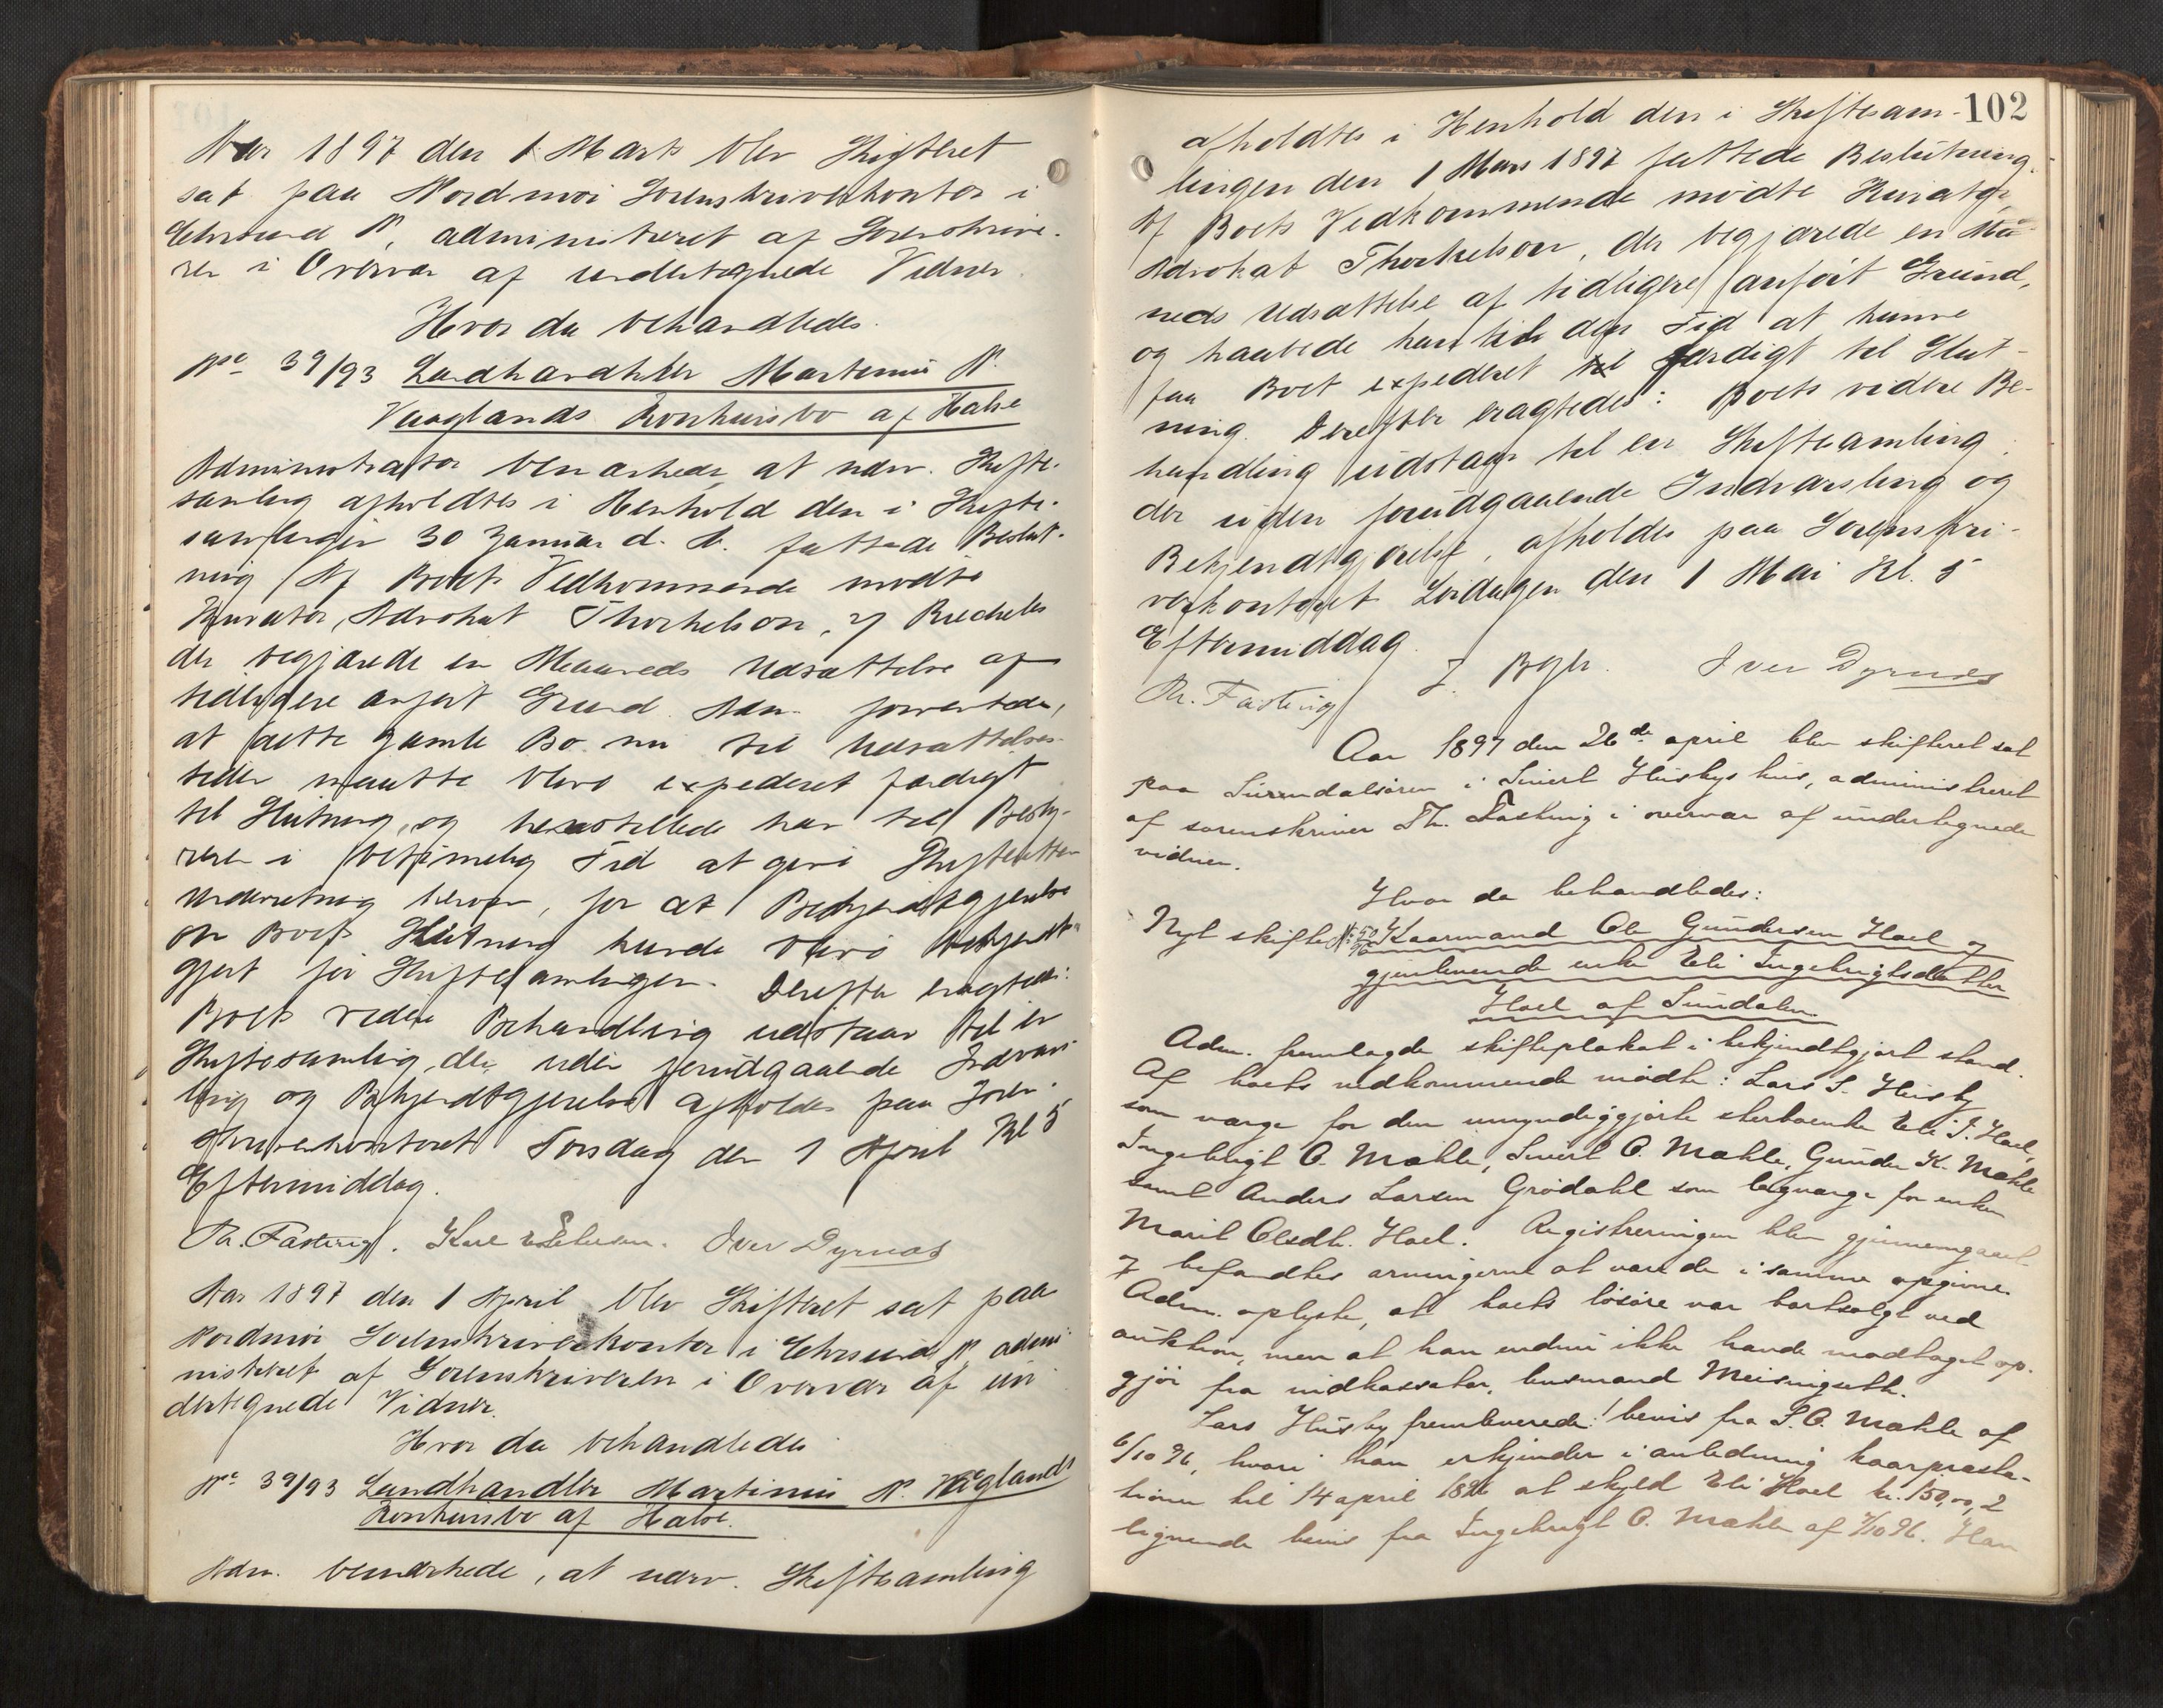 Aar 1897 den 1 Marts blev Skifteret
sat paa Nordmør Sorenskriverkontor i
Chrsund N, administreret af Sorenskrive-
ren i Overvær af undertegnede Vidner.
Hvor da behandledes.
No 39/93 Landhandler Martinus N.
Vaaglands Konkursbo af Halse
Administrator bemærkede, at nærv. Skifte-
samling afholdtes i Henhold den i Skifte-
samlingen 30 Januar d. A. fattede Beslut-
ning. Af Boets Vedkommende mødte
Kurator, Advokat Thorkelson,
der begjærede en Maaneds Udsættelse af
tidligere anført Grund. Han forventede,
at dette gamle Bo nu til Udsættelses-
tiden maatte blive expederet færdigt
til Slutning, og henstillede han til Besty-
reren i betimelig Tid at give Skifteretten
Underretning herom, for at Bekjendtgjørelse
om Boets Slutning kunde blive bekjendt-
gjort før Skiftesamlingen. Derefter eragtedes:
Boets videre Behandling udstaar til en
Skiftesamling, der uden forudgaaende Indvars-
ling og Bekjendtgjørelse afholdes paa Soren-
skriverkontoret Torsdag den 1 April Kl 5
Eftermiddag.
Th. Fasting. Iver Dyrnæs
Aar 1897 den 1 April blev Skifteret sat paa
Nordmør Sorenskriverkontor i Chrsund N, admi-
nistreret af Sorenskriveren i Overvær af un-
dertegnede Vidner.
Hvor da behandledes
No 39/93 Landhandler Martinus N. Vaaglands
Konkursbo af Halse.
Adm. bemærkede, at nærv. Skiftesamling
102
afholdtes i Henhold den i Skiftesam-
lingen den 1 Mars 1897 fattede Beslutning.
Af Boets Vedkommende mødte Kurator,
Advokat Thorkelson, der begjærede en Maa-
neds Udsættelse af tidligere anført Grund,
og haabede han til den Tid at kunne
faa Boet expederet færdigt til Slut-
ning. Derefter eragtedes: Boets videre Be-
handling udstaar til en Skiftesamling,
der uden forudgaaende Indvarsling og
Bekjendtgjørelse, afholdes paa Sorenskri-
verkontoret Lørdagen den 1 Mai Kl. 5
Eftermiddag.
Th. Fasting J. Iver Dyrnæs
Aar 1897 den 26de april blev skifteret sat
paa Surendalsøren i Sivert Huskys hus, administreret
af sorenskriver Th. Fasting i overvær af undertegnede
vidner.
Hvor da behandledes:
Nyt skifte No 50/96 Kaarmand Ole Gundersen Hoel og
gjenlevende enke Eli Ingebrigtsdatter
Hoel af Sundalen.
Adm. fremlagde skifteplakat i bekjendtgjort stand.
Af boets vedkommende mødte: Lars S. Husby
som værge for den umyndiggjorte sterboenke Eli I. Hoel,
Ingebrigt O. Mæhle, Sivert O. Mæhle, Gunder K. Mæhle
samt Anders Larsen Grødahl som lagværge for enken
Marit Olsdt. Hoel. Registreringen blev gjennemgaaet
& befandtes arvingerne at være de i samme opgivne.
Adm. oplyste, at boets løsøre var bortsolgt ved
auktion, men at han endnu ikke havde modtaget op-
gjør fra indkassator, lensmand Meisingseth.
Lars Husby fremleverede: 1 bevis fra S. O. Mæhle af
6/10 96, hvori han erkjender i anledning kaarpræsta-
tioner til 14 april 1896 at skyld Eli Hoel kr. 150,00, 2
lignende bevis fra Ingebrigt O. Mæhle af 7/10 96. Han